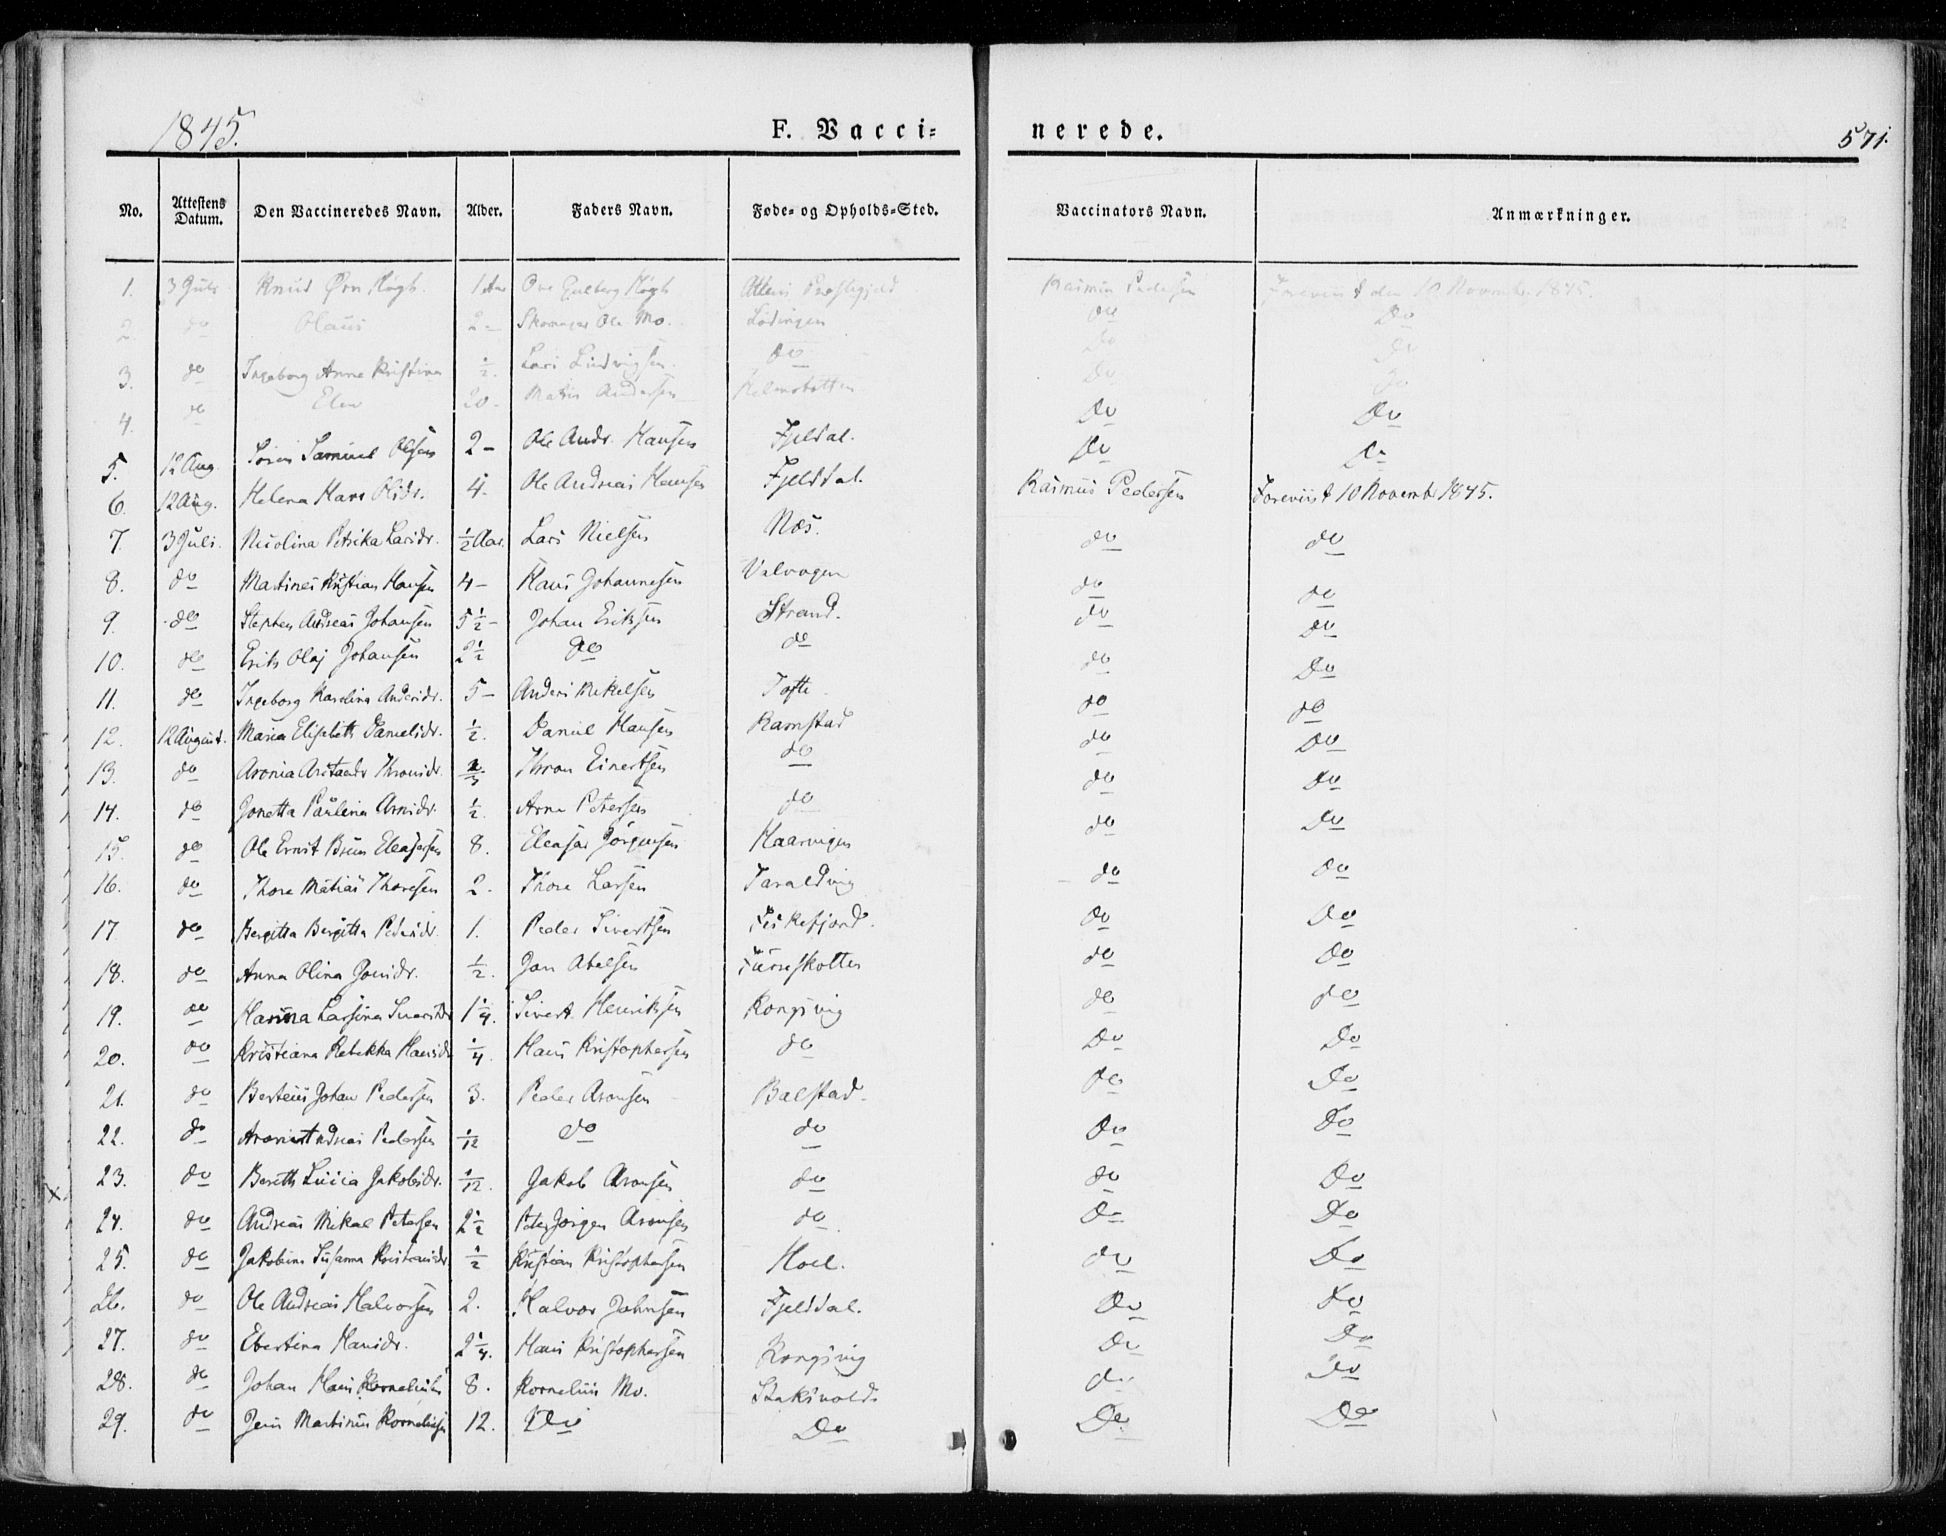 1845.
F. Vacci=
nerede.
571.
No. Attestens Datum. Den Vaccineredes Navn. Alder. Faders Navn. Føde- og Opholds-Sted. Vaccinators Navn. Anmærkninger.
1. 3 Juli Knud Ørn Høgh. 1 Aar Ove Høgh Præstegjeld Rasmus Pedersen Foreviist den 10 Novembr 1845.
2. do Olaus 2 - Ole Mo. Lødingen do Do
3. do Ingeborg Anna Kristina ½. Lars Ludvigsen. do Do Do
4. do Elen 20 - Matis Andersen Do Do
5. 12 Aug. Samuel Olsen 2 - Ole Andr. Hansen Fjeldal. Do Do
6. 12 Aug. Helena Olsdr. 4. Ole Andreas Hansen Fjelddal. Rasmus Pedersen Foreviist 10 Novembr 1845.
7. 3 Juli. Nicolina Petrika Larsdr. ½ Aar. Lars Nielsen Næs. do do
8. do Martines Kristian Hansen 4 - Hans Johannesen Valvagen do do
9. do Stephen Andreas Johansen 5½ - Johan Eriksen Strand. do do
10. do Erik Olaj Johansen 2½ do do do Do
11. do Ingeborg Karolina Andersdr. 5 - Anders Mikelsen Tofte do do
12. 12 August. Maria Elisabeth Danielsdr. ½. Daniel Hansen Ramstad do Do
13. do Aronia Thronsdr. Thron Einertsen do do Do
14. do Jonetta Paulina Arnsdr. ½. Arne Petersen do do Do
15. do Ole Ernst Bruun Eleasersen 8. Eleasar Jørgensen Haarvigen do do
16. do Thore Matias Thoresen 2. Thore Larsen Taraldvig do Do
17. do Bergitta Pedersdr. 1. Peder Sivertsen Fiskefjord. do Do
18. do Anna Olina Jonsdr. ½. Jon Abelsen do Do
19. do Hansina Larsina 1¼. Sivert Henriksen Kongsvig do do
20. do Kristiana Rebekka Hansdr ¼. Hans Kristophersen do Do Do
21. do Berteus Johan Pedersen 3. Peder Aronsen Balstad. do Do
22. do Andreas Pedersen 1/12 do do Do Do
23. do Bereth Lucia Jakobsdr. 1/12. Jakob Aronsen do do Do
24. do Andreas Mikal Petersen 2½ Peter Jørgen Aronsen do. do Do
25. do Jakobina Susanna Kristiansdr ½ Kristian Kristophersen Hoel. do Do
26. do Ole Andreas Halvorsen 2. Halvor Johnsen Fjelddal. Do Do
27. do Ebertina Hansdr. 2¼. Hans Kristophersen Kongsvig Do Do
28. do Johan Hans Kornelius 8. Kornelius Mo. Staksvold do Do
29. do Jens Martinus Korneliusen 12. Do Do Do Do